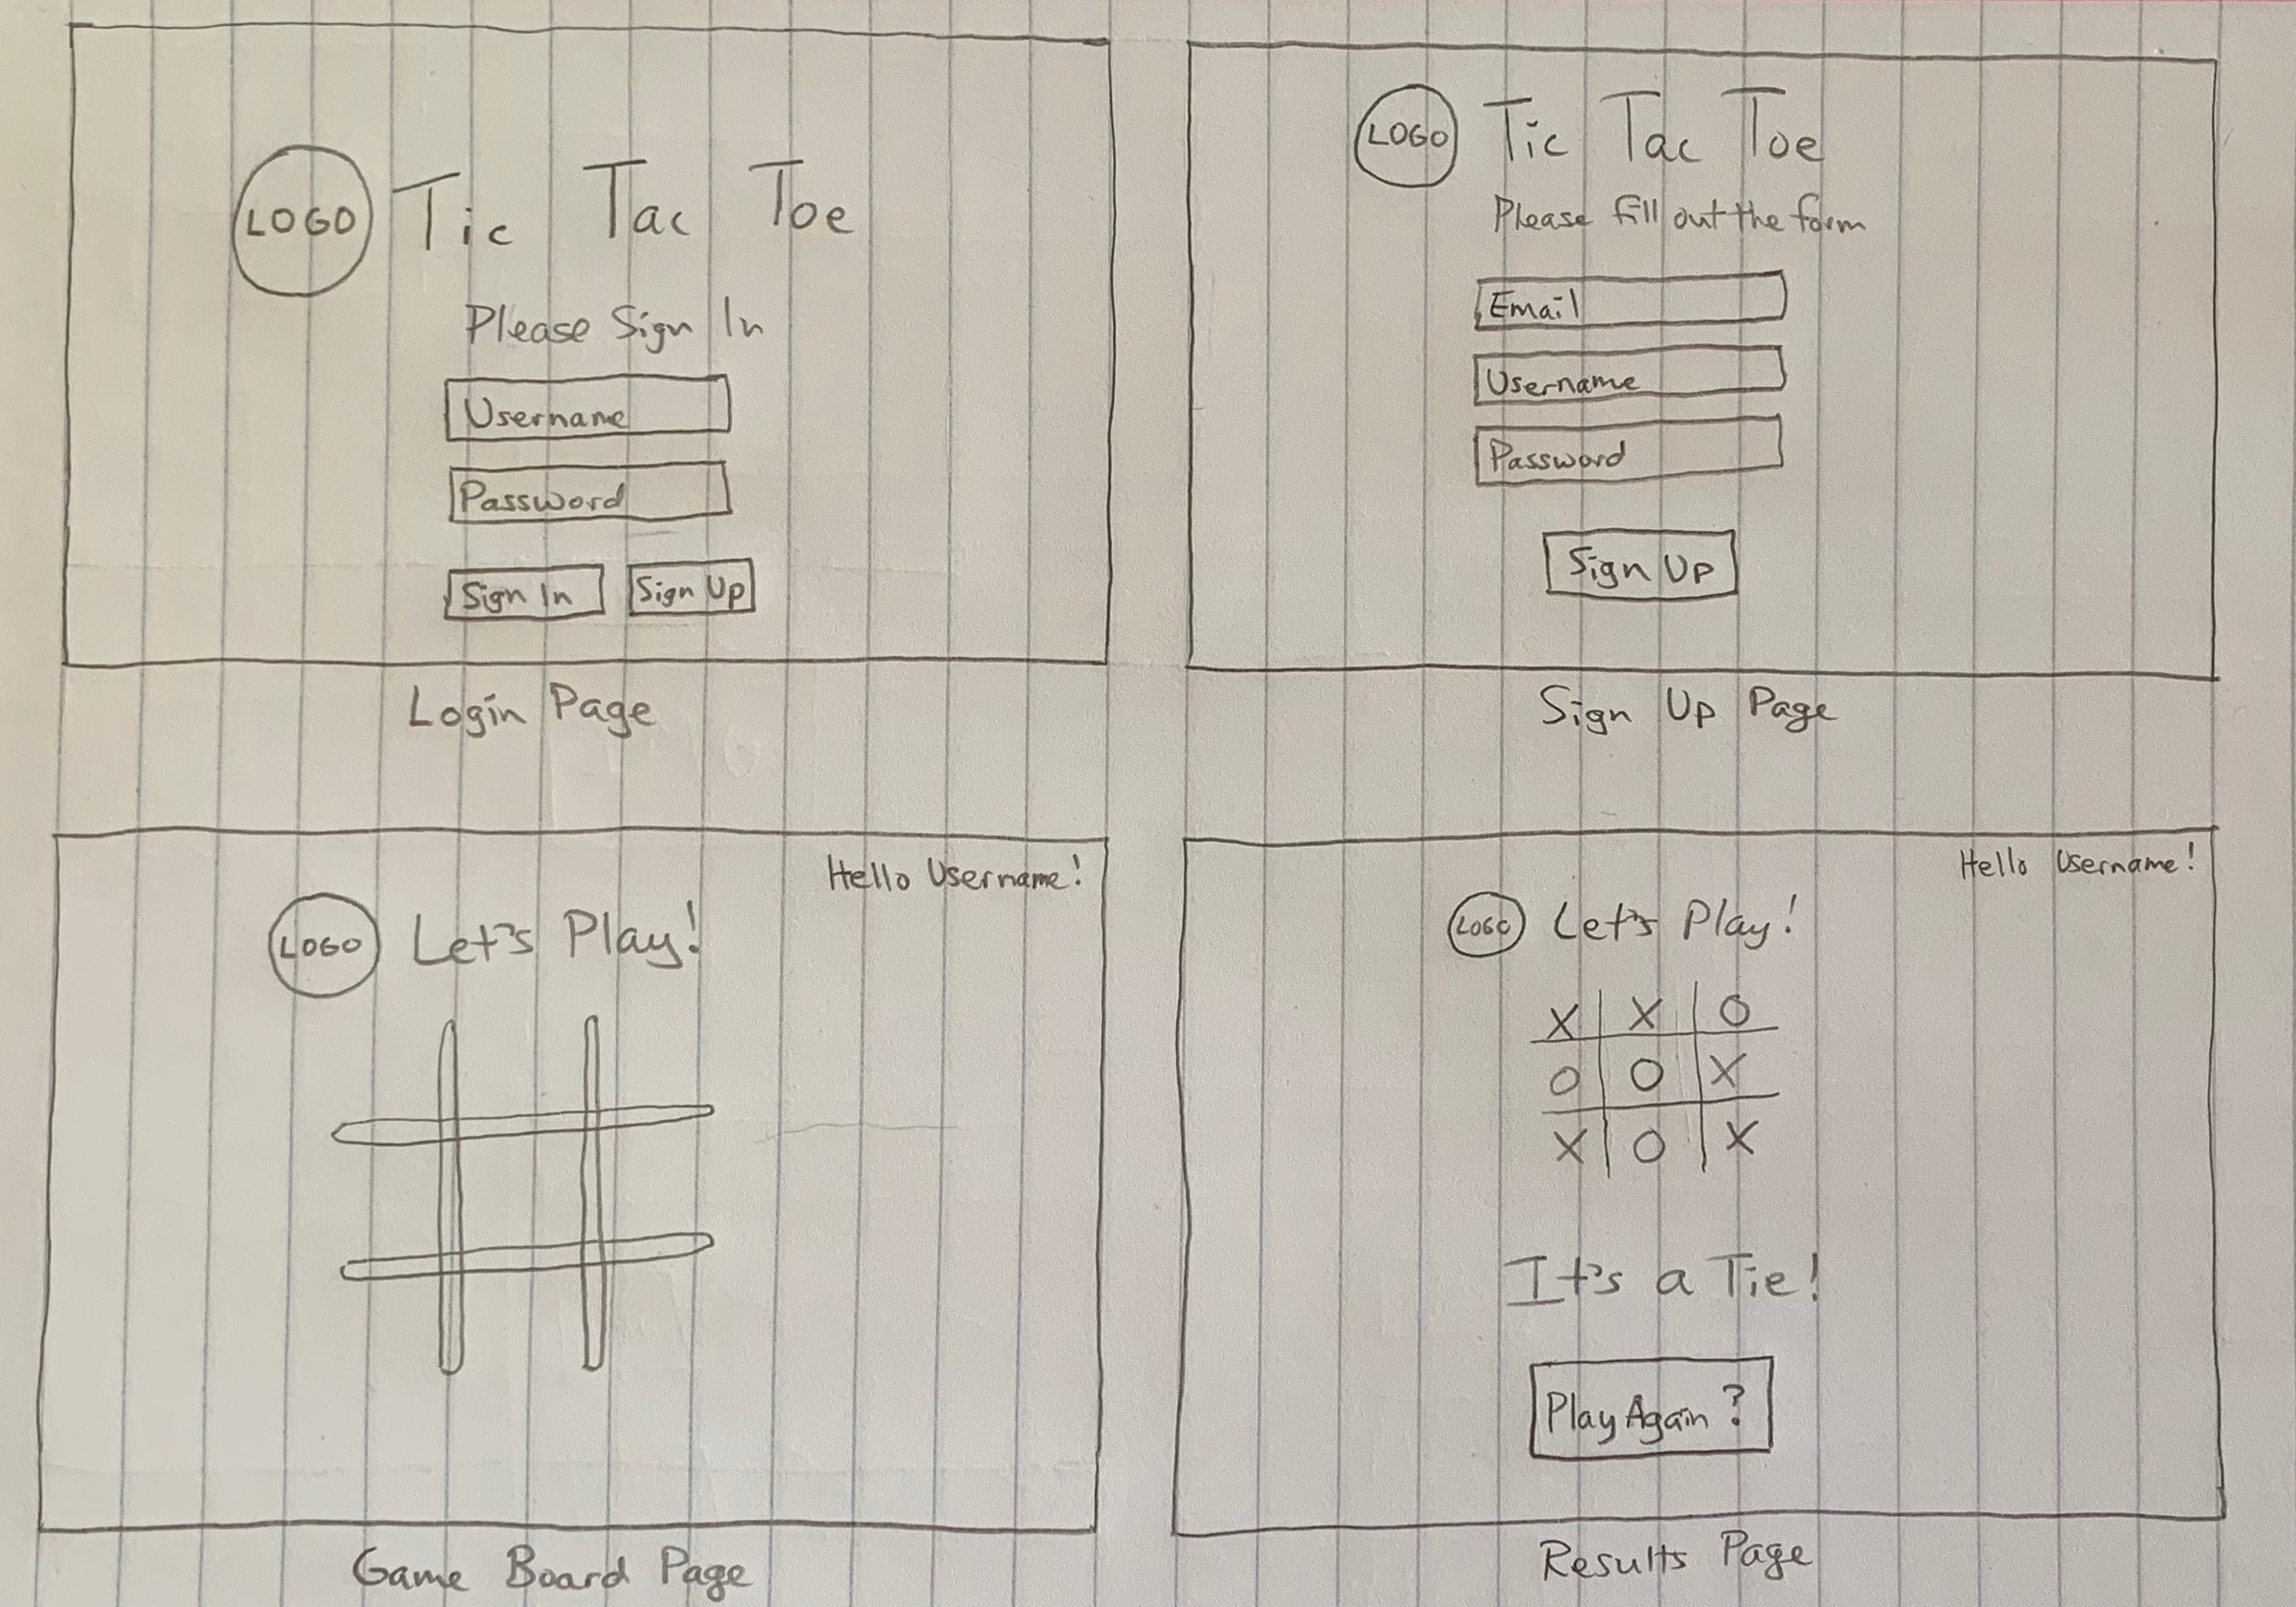 LOGO Tic Tac Toe
Please Sign In
Username
Password
Sign In Sign Up
Login Page
LOGO Tic Tac Toe
Please fill out the form
Email
Username
Password
Sign Up
Sign Up Page
Hello Username!
LOGO Let's Play!
Game Board Page
Hello Username!
LOGO Let's Play!
X X O
O O X
X O X
It's a Tie!
Play Again ?
Results Page